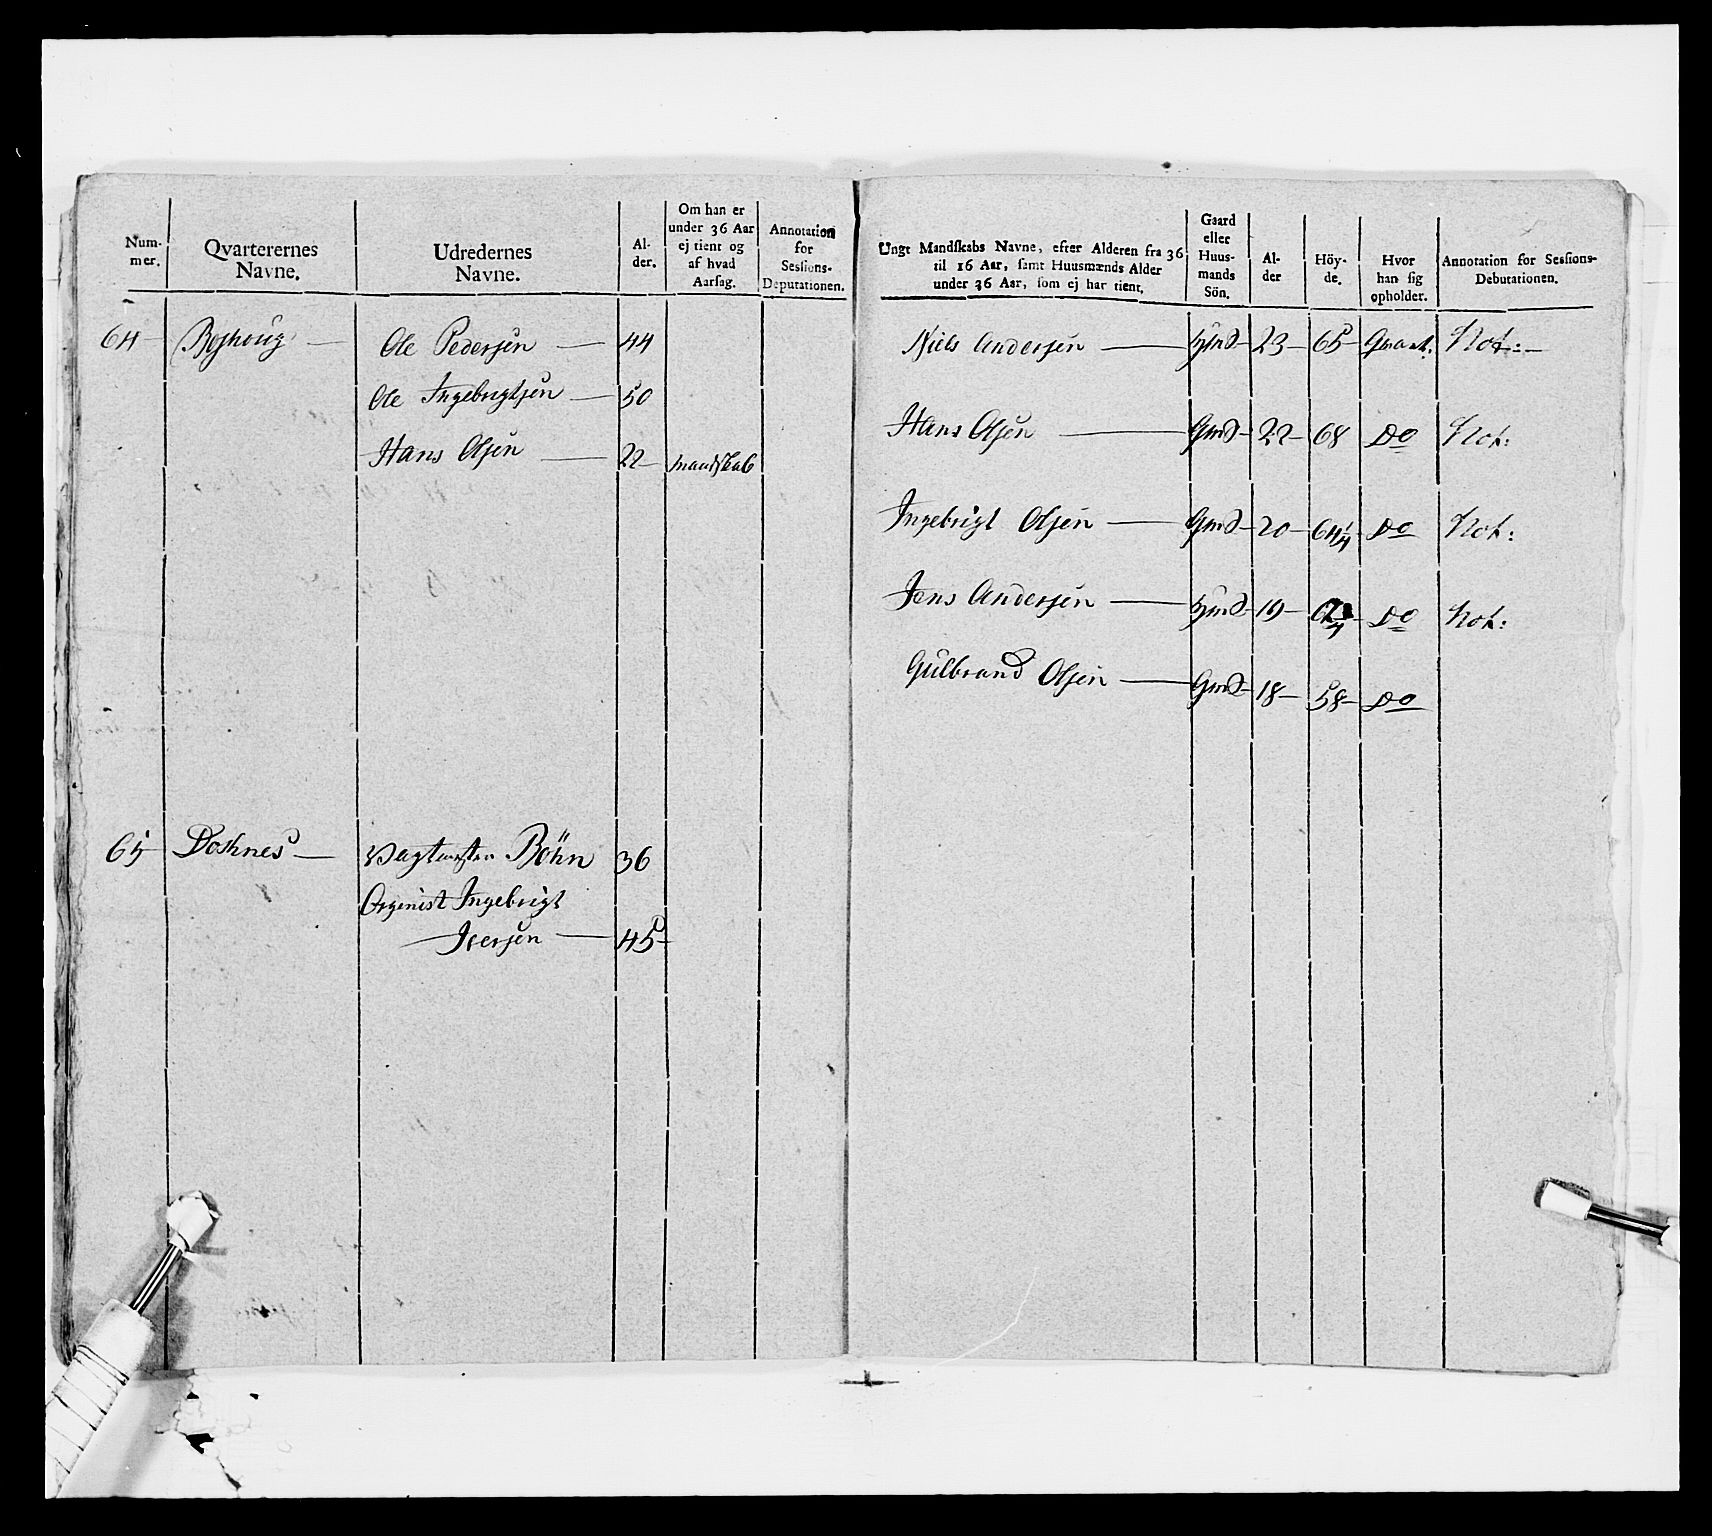 Num-
mer.
Qvarterernes
Navne.
Udredernes
Navne.
Al-
der.
Om han er
under 36 Aar
ej tient og
af hvad
Aarsag.
Annotation
for
Sessions-
Deputationen.
64 Ole Pedersen 44
Ole Ingebrigtsen 50
Hans Olsen 22 mandskab
65 Böhn 36
Organist Ingebrigt
Iversen 45
Ungt Mandskabs Navne, efter Alderen fra 36
til 16 Aar, samt Huusmænds Alder
under 36 Aar, som ej har tient.
Gaard
eller
Huus-
mands
Sön.
Al-
der
Höy-
de.
Hvor
han sig
opholder.
Annotation for Sessions-
Debutationen.
Niels Andersen 23 65 Not:
Hans Olsen Gmd 22 68 Do Not:
Ingebrigt Olsen Gmd 20 64 1/4 Do Not:
Jens Andersen 19 Do Not:
Gulbrand Olsen Gmd 18 58 Do